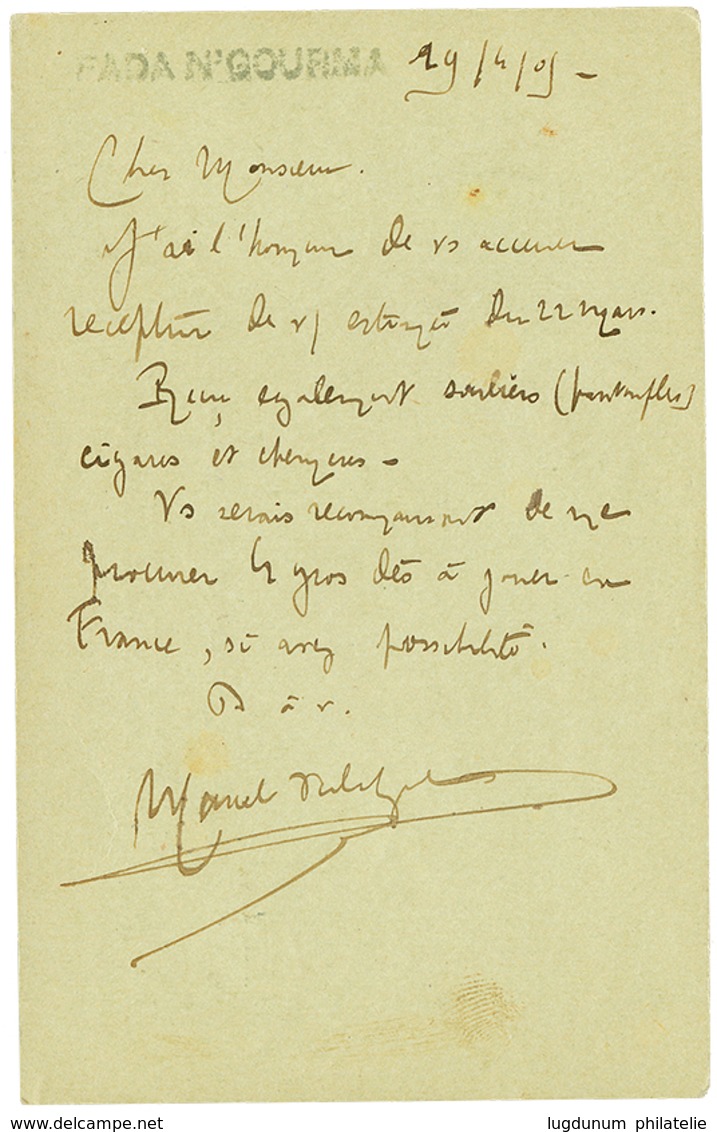 FADA N'GOURMA 19/4/05 -
Cher Monsieur.
J'ai l'honneur de vs accuser
reception de v/ estimée du 22 mars.
Reçu également souliers (pantoufles)
cigares et chemises -
Vs serais reconnaissant de me
procurer 4 gros dés à jouer en
France, si avez possibilité.
B à v.
Marcel
www.delcampe.net lugdunum philatelie